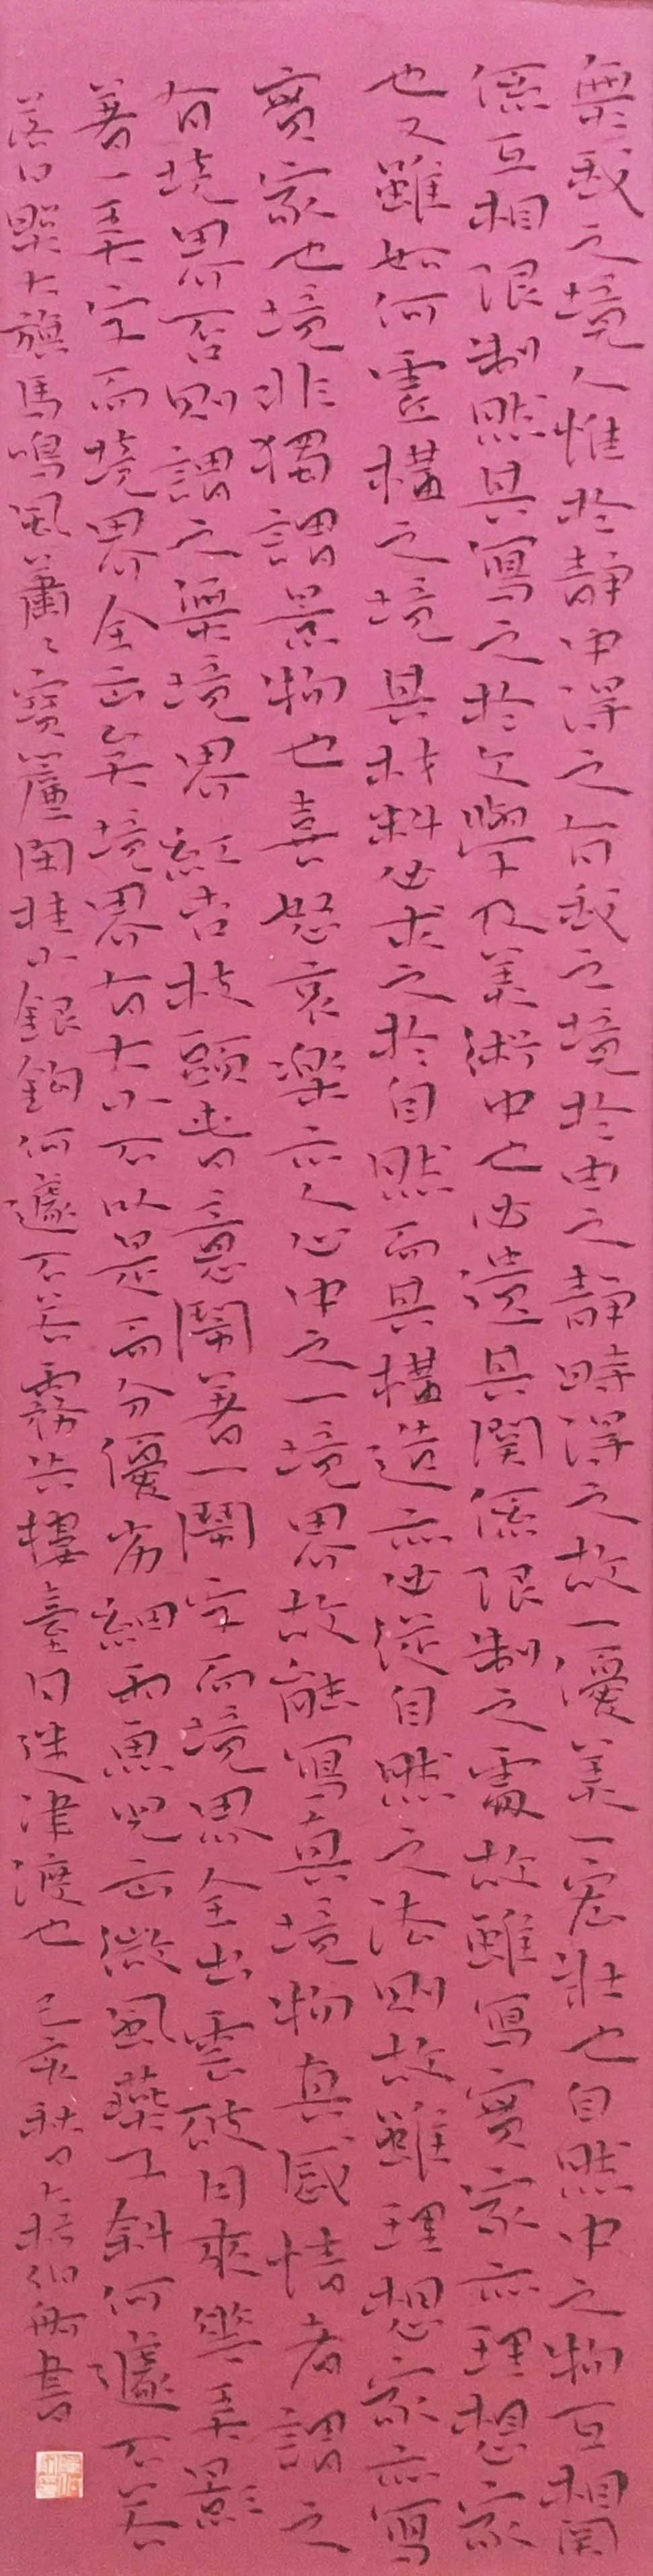 無我之境人惟於靜中得之有我之境於由之靜時得之故一優美一宏壯也自然中之物互相関
係互相限制然其寫之於文學及美術中也必遺其関係限制之處故雖寫實家亦理想家
也又雖如何虛構之境其材料必求之於自然而其構造亦必從自然之法則故雖理想家亦寫
實家也境非獨謂景物也喜怒哀樂亦人心中之一境界故能寫真境物真感情者謂之
有境界否則謂之無境界紅杏枝頭春意鬧著一鬧字而境界全出雲破月來花弄影
著一弄字而境界全出矣境界有大小不以是而分優劣細雨魚兒出微風燕子斜何遽不若
落日照大旗馬鳴風蕭〻寶簾閑挂小銀鉤何遽不若霧失樓臺月迷津渡也 己亥秋日 書